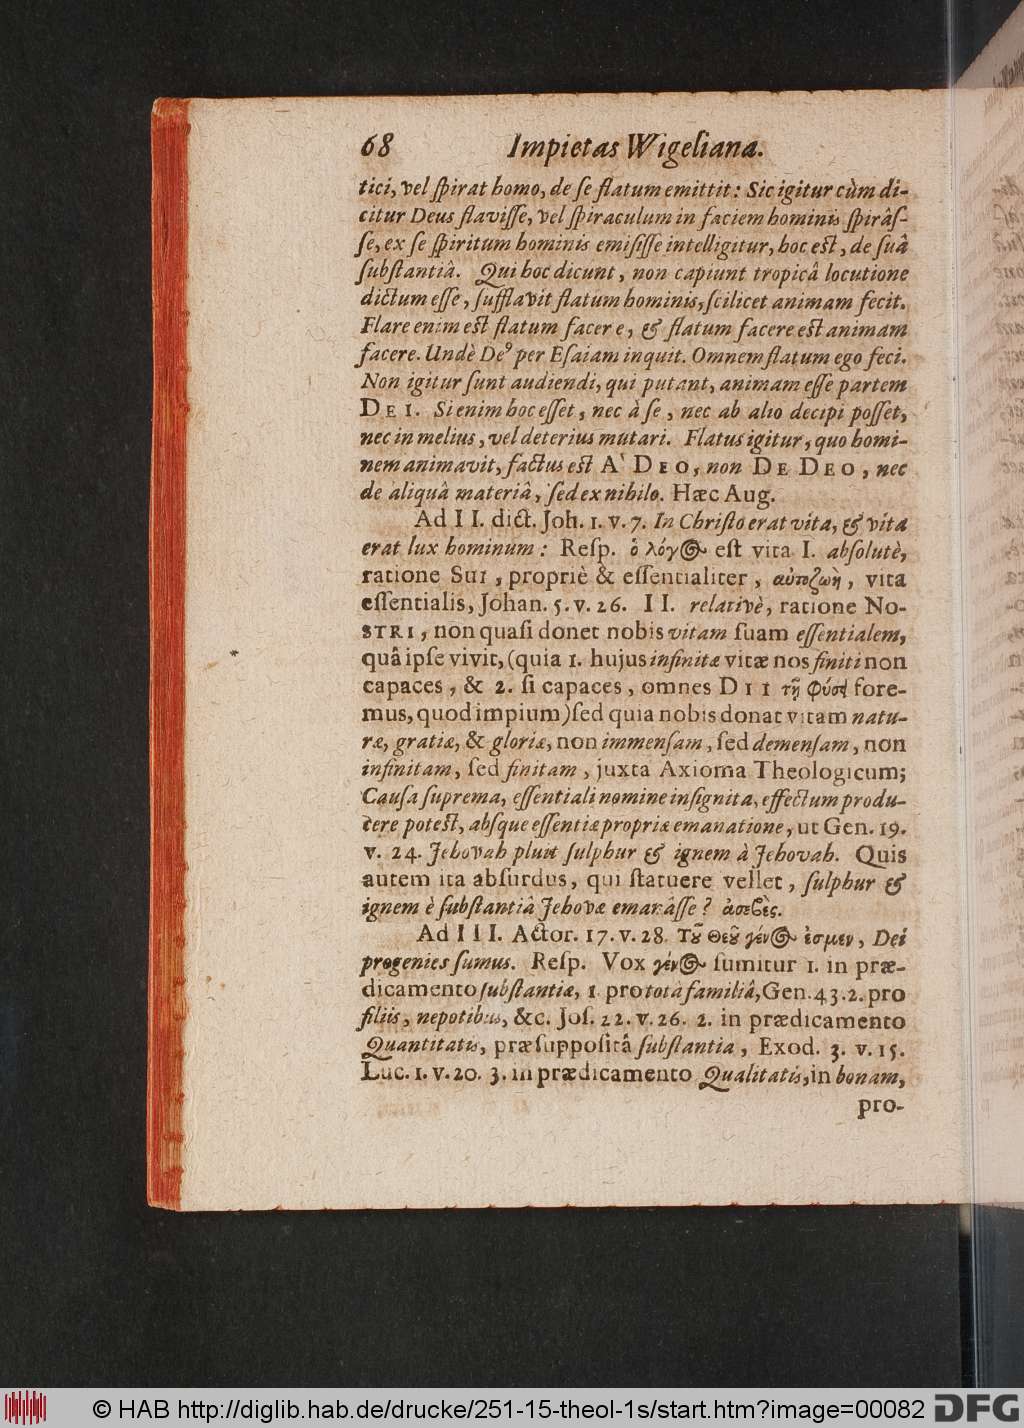 68 Impietas Wigeliana.
tici, vel ſpirat homo, de ſe flatum emittit: Sic igitur cùm di-
citur Deus flaviſſe, vel ſpiraculum in faciem hominis ſpiràſ-
ſe, ex ſe ſpiritum hominis emiſiſſe intelligitur, hoc eſt, de ſuâ
ſubſtantiâ. Qui hoc dicunt, non capiunt tropicâ locutione
dictum eſſe, ſufflavit flatum hominis, ſcilicet animam fecit.
Flare enim eſt flatum facere, & flatum facere eſt animam
facere. Undè Deꝰ per Eſaiam inquit. Omnem flatum ego feci.
Non igitur ſunt audiendi, qui putant, animam eſſe partem
DEI. Si enim hoc eſſet, nec à ſe, nec ab alio decipi poſſet,
nec in melius, vel deterius mutari. Flatus igitur, quo homi-
nem animavit, factus eſt A` DEO, non DE DEO, nec
de aliquâ materiâ, ſed ex nihilo. Hæc Aug.
Ad II. dict. Joh. 1. v. 7. In Chriſto erat vita, & vita
erat lux hominum: Reſp. ὁ λόγος eſt vita I. abſolutè,
ratione SUI, propriè & eſſentialiter, αὐτοζωὴ, vita
eſſentialis, Johan. 5. v. 26. II. relativè, ratione NO-
STRI, non quaſi donet nobis vitam ſuam eſſentialem,
quâ ipſe vivit, (quia 1. hujus infinitæ vitæ nos finiti non
capaces, & 2. ſi capaces, omnes DII τῇ φύσει fore-
mus, quod impium) ſed quia nobis donat vitam natu-
ræ, gratiæ, & gloriæ, non immenſam, ſed demenſam, non
infinitam, ſed finitam, juxta Axioma Theologicum;
Cauſa ſuprema, eſſentiali nomine inſignita, effectum produ-
cere poteſt, absque eſſentiæ propriæ emanatione, ut Gen. 19.
v. 24. Jehovah pluit ſulphur & ignem à Jehovah. Quis
autem ita abſurdus, qui ſtatuere vellet, ſulphur &
ignem è ſubſtantiâ Jehovæ emanâſſe? ἀσεβὲς.
Ad III. Actor. 17. v. 28. Τοῦ Θεοῦ γένος ἐσμεν, Dei
progenies ſumus. Reſp. Vox γένος ſumitur 1. in præ-
dicamento ſubſtantiæ, 1 pro tota familiâ, Gen. 43. 2. pro
filiis, nepotibus, &c. Joſ. 22. v. 26. 2. in prædicamento
Quantitatis, præſuppoſitâ ſubſtantia, Exod. 3. v. 15.
Luc. 1. v. 20. 3. in prædicamento Qualitatis, in bonam,
pro-
© HAB http://diglib.hab.de/drucke/251-15-theol-1s/start.htm?image=00082
DFG